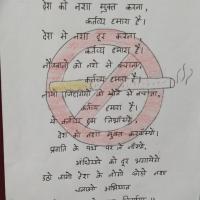 देश को नशा मुक्त करना,
कर्तव्य हमारा है।
देश से नशा दूर करना,
कर्तव्य हमारा है।
नौजवानों को नशे से बचाना,
कर्तव्य हमारा है।
लाखों जिंदगियों को से बचाना,
कर्तव्य हमारा है।
ये कर्तव्य हम निभाएंगे,
देश को नशा मुक्त करवाएंगे।
प्रगति के पथ पर ले जाएंगे,
को दूर भगाएंगे
उठो देश के लोगों जोड़ो नशा
अभियान